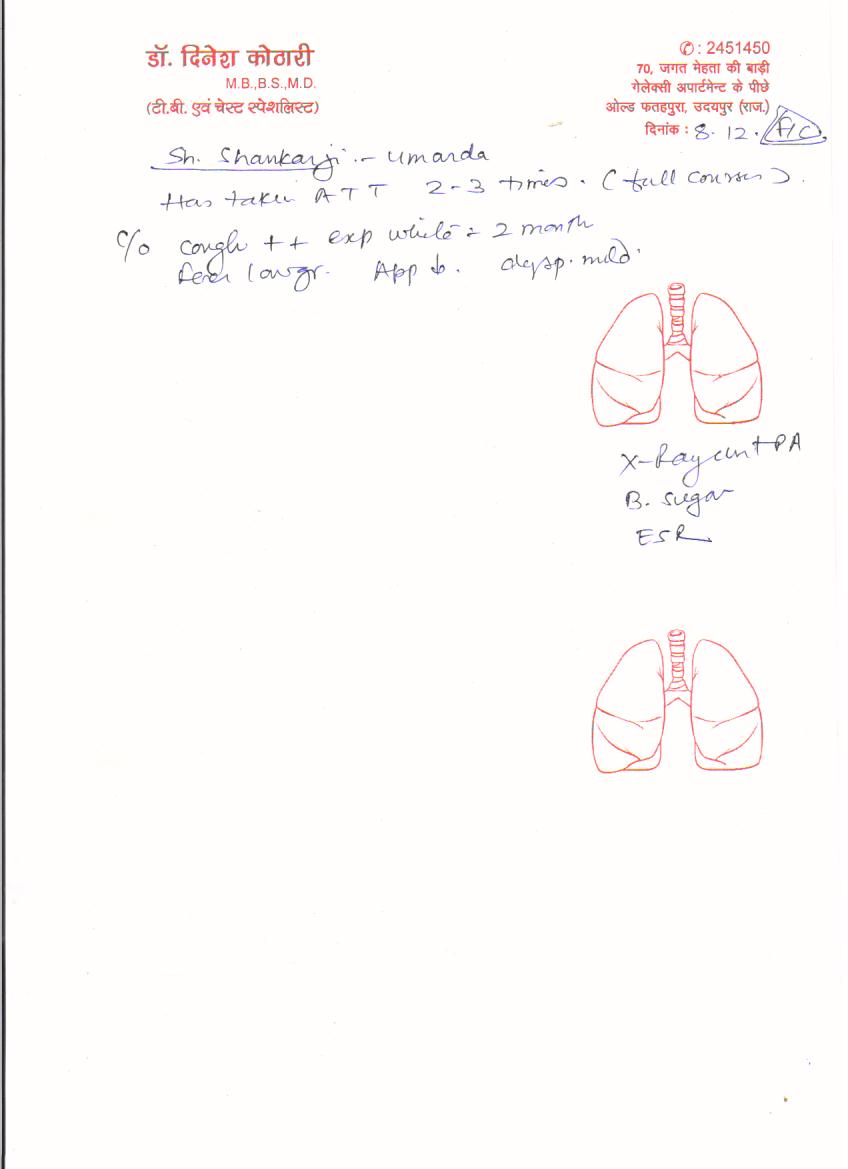 डॉ. दिनेश कोठारी
M.B.,B.S.,M.D.
(टी.बी. एवं चेस्ट स्पेशलिस्ट)
✆: 2451450
70, जगत मेहता की बाड़ी
गेलेक्सी अपार्टमेन्ट के पीछे
ओल्ड फतहपुरा, उदयपुर (राज.)
दिनांक : 8. 12.
Sh. Shankarji :- Umarda
Has taken ATT 2-3 times. (full courses).
C/o cough ++ exp white = 2 month
fever low gr. App ↓. dysp. mild.
X-Ray PA
B. Sugar
ESR